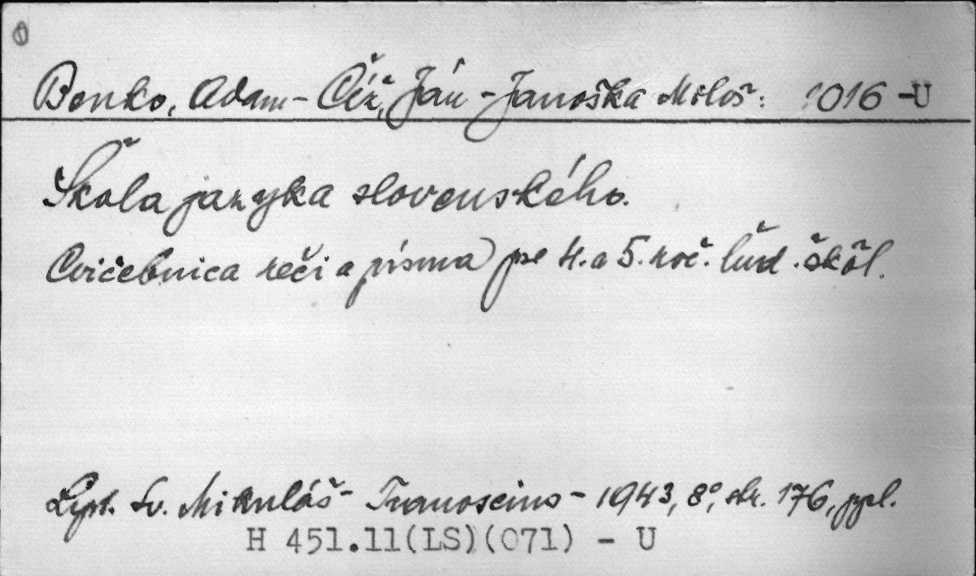 Benko, Adam - Číž, Ján - Janoška Miloš: 1016 -U
Škola jazyka slovenského.
Cvičebnica reči a písma pre 4. a 5. roč. ľud. škôl.
Lipt. Sv. Mikuláš - Tranoscius - 1943, 8°, str. 176, ppl.
H 451.11(LS)(071) - U